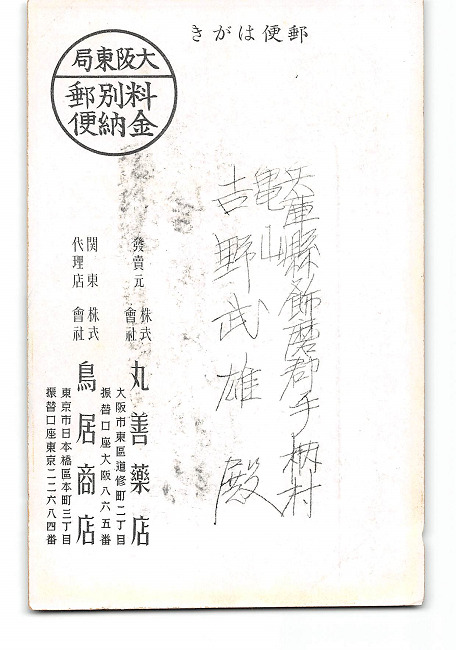 きがは便郵
局東阪大
料金別納郵便
兵庫縣飾磨郡手柄村
亀山
吉野武雄殿
發賣元 株式會社 丸善藥店
大阪市東區道修町二丁目
振替口座大阪八六五番
関東代理店 株式會社 鳥居商店
東京市日本橋區本町三丁目
振替口座東京二二六八四番